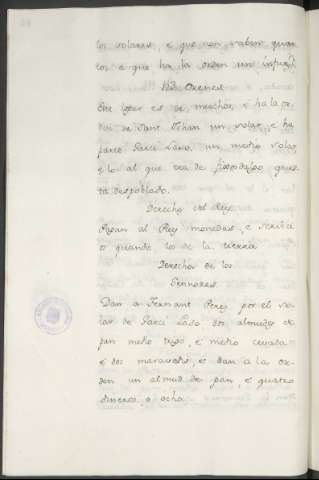 los solares, e que non saben quan
tos, e que ha la orden un
Este logar es de muchos, e ha la or
den de Sant Johan un solar, e ha
parte Garci Laso un medio solar,
e lo al que era de fijosdalgo que es
ta despoblado.
Derecho del Rey.
Pagan al Rey monedas, e servicio
o quando los de la tierra
Derechos de los
Sennores
Dan a Fernant Perez por el so
lar de Garci Laso dos almudes de
pan medio trigo, e medio cevada
e dos maravedis, e dan a la or
den un almud de pan, e quatro
dineros, o ocho.